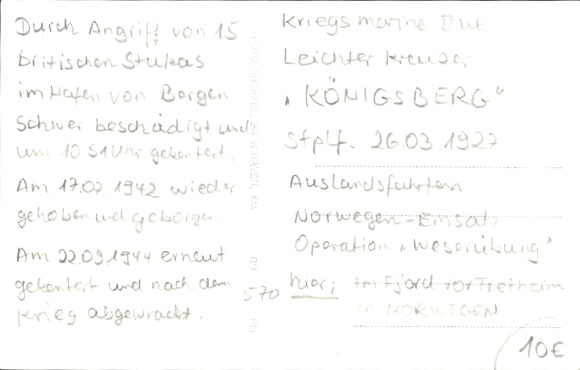 Durch Angriff von 15
britischen Stukas
im Hafen von Bergen
Schwer beschädigt und
um 10 51 Uhr gekentert.
Am 17.07.1942 wieder
gehoben und geborgen
Am 22.09.1944 erneut
gekentert und nach dem
Krieg abgewrackt.
Kriegsmarine
Leichter Kreuzer
"KÖNIGSBERG"
Stplf. 26.03 1927
Auslandsfahrten
Norwegen-Einsatz
Operation "Weserübung"
hier: Im Fjord vor
in NORWEGEN
570
10€